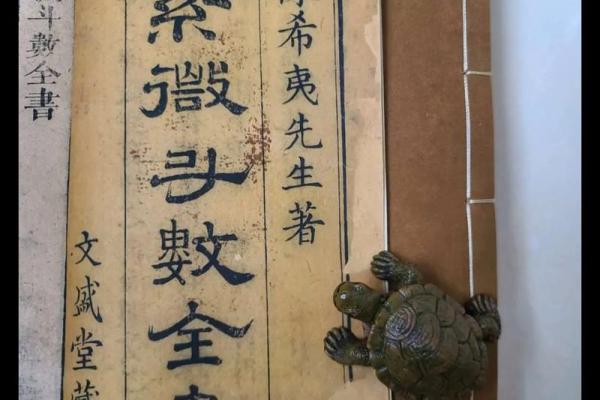 希夷先生著
紫微斗數全
文盛堂藏
斗數全書